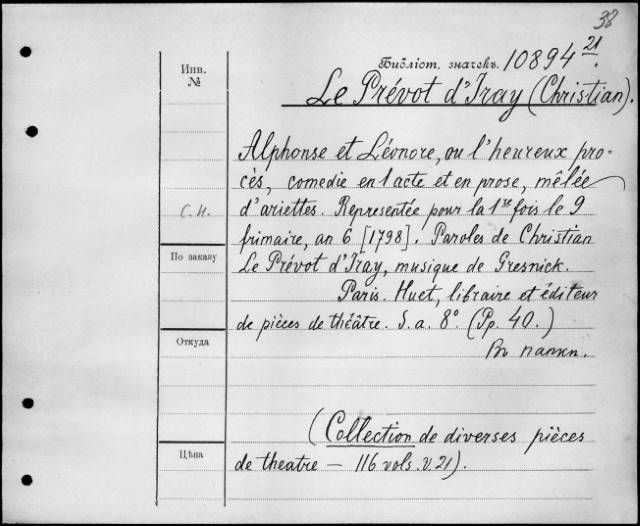 38
Библіот. значекъ. 10894 21.
Инв.
№
Le Prévot d'Iray (Christian).
Alphonse et Léonore, ou l'heureux pro-
cès, comedie en 1 acte et en prose, mêlée
С.Н. d'ariettes. Representée pour la 1re fois le 9
frimaire, an 6 [1798]. Paroles de Christian
По заказу
Le Prévot d'Iray, musique de Gresnick.
Paris. Huet, libraire et éditeur
de pièces de théâtre. S. a. 8º. (Pp. 40.)
Откуда
Въ папкѣ.
(Collection de diverses pièces
Цѣна
de theatre — 116 vols. v. 21).